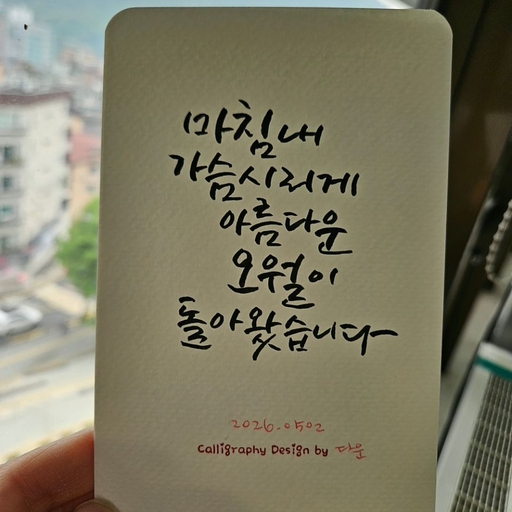 마침내
가슴시리게
아름다운
오월이
돌아왔습니다
2026.0502
Calligraphy Design by 다운